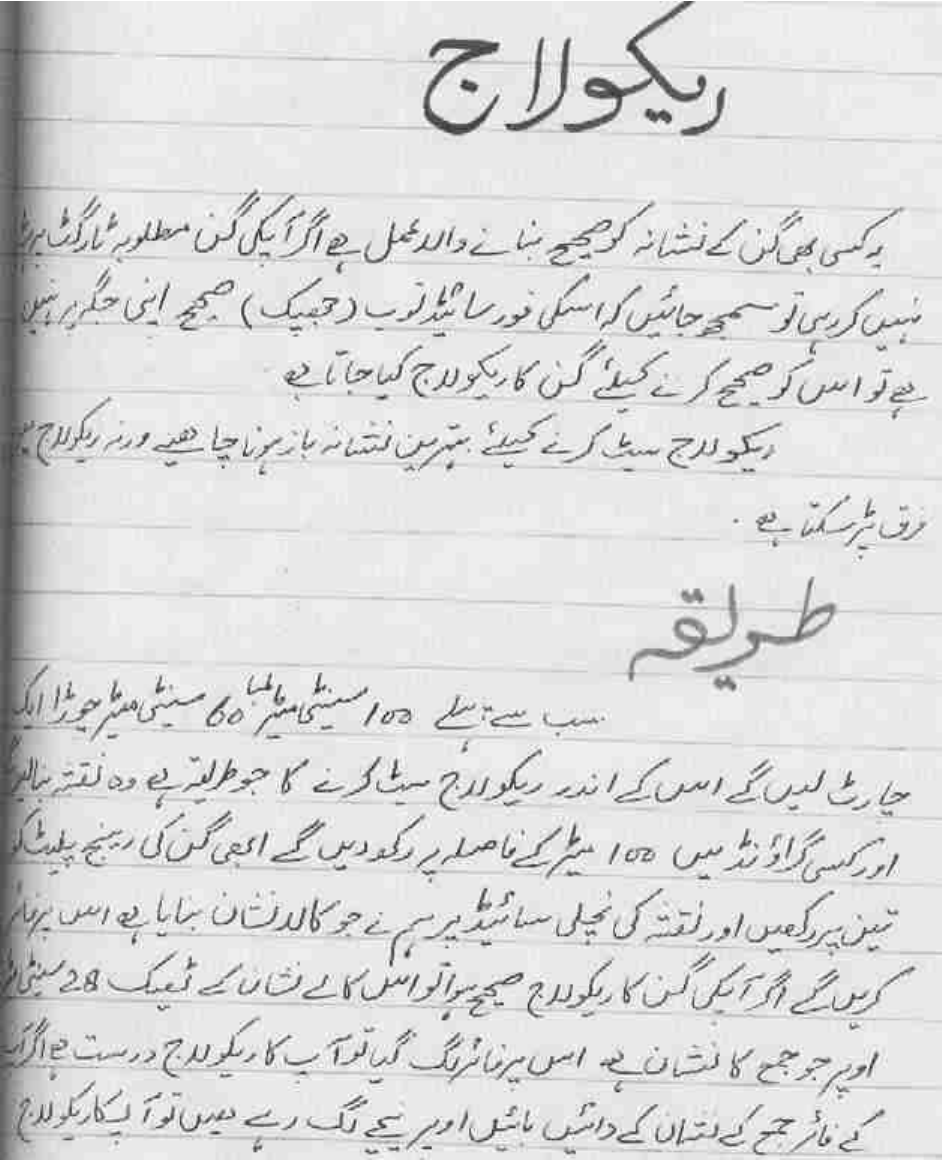 ریکولاج
یہ کسی بھی گن کے نشانہ کو صحیح بنانے والا عمل ہے اگر آپکی گن مطلوبہ ٹارگٹ پر
نہیں کر رہی تو سمجھ جائیں کہ اسکی فور سائیڈ ٹوپ ( جھپک ) صحیح اپنی جگہ پر نہیں
ہے تو اس کو صحیح کرنے کیلئے گن کا ریکولاج کیا جاتا ہے
ریکولاج سیٹ کرنے کیلئے بہترین نشانہ باز ہونا چاھیے ورنہ ریکولاج
فرق پڑ سکتا ہے ۔
طریقہ
سب سے پہلے 100 سینٹی میٹر لمبا 60 سینٹی میٹر چوڑا ایک
چارٹ لیں گے اس کے اندر ریکولاج سیٹ کرنے کا جو طریقہ ہے وہ نقشہ
اور کسی گراؤنڈ میں 100 میٹر کے فاصلہ پر رکھ دیں گے ابھی گن کی رینج پلیٹ کو
تین پر رکھیں اور نقشہ کی نچلی سائیڈ پر ہم نے جو کالا نشان بنایا ہے اس پر فائر
کریں گے اگر آپکی گن کا ریکولاج صحیح ہوا تو اس کالے نشان کے ٹھیک 28
اوپر جو جمع کا نشان ہے اس پر فائر لگ گیا تو آپ کا ریکولاج درست ہے اگر
کے فائر جمع کے نشان کے دائیں بائیں اوپر نیچے لگ رہے ھیں تو آپ کا ریکولاج